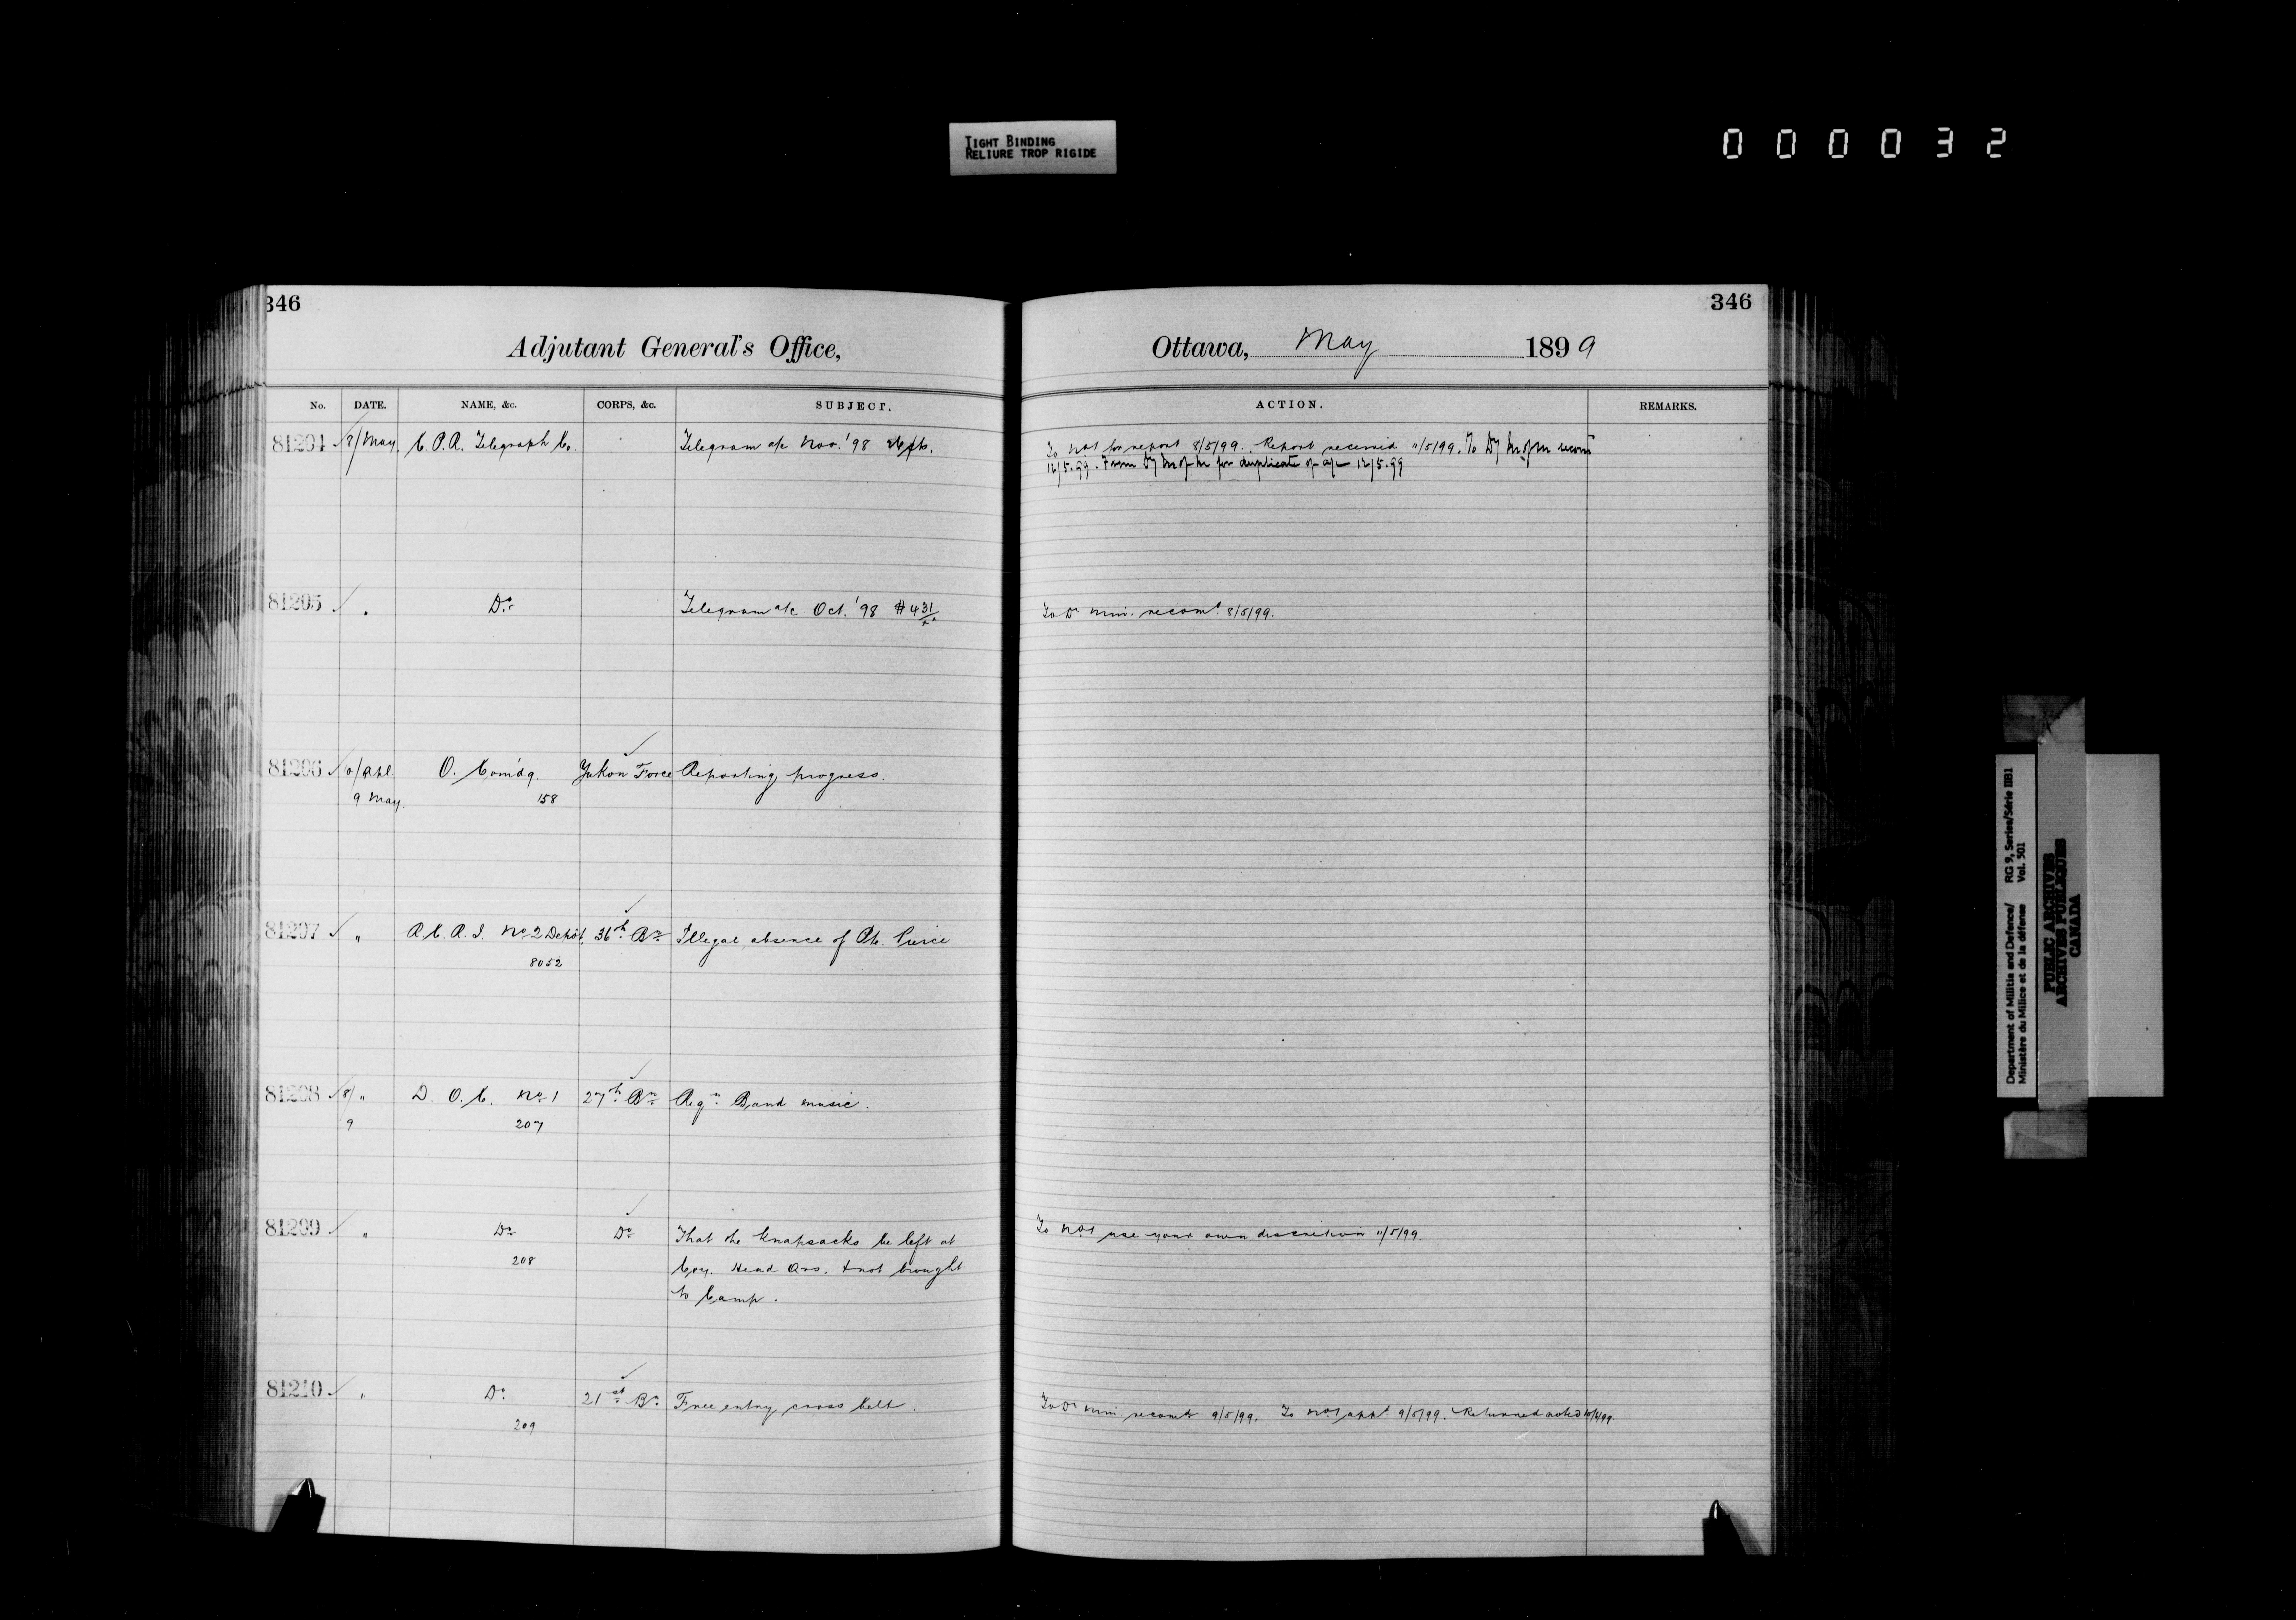 TIGHT BINDING
RELIURE TROP RIGIDE
000032
346
346
Adjutant General's Office,
Ottawa, May 1899
No. DATE. NAME, &c. CORPS, &c. SUBJECT. ACTION. REMARKS.
81204 8/May. C.P.R. Telegraph Co. Telegram a/c Nov. '98 To No 1 for report 8/5/99. Report received 11/5/99. To Dy M of M
12/5.99. From Dy M of M for duplicate of a/c 12/5.99
81205 " Do Telegram a/c Oct. '98 $431/xx To D. Min. recomd 8/5/99.
81206 Apl. O. Com'dg. Yukon Force Reporting progress.
9 May. 158
81207 " R.C.R.I. No 2 Depôt, 36th Bn Illegal absence of Pte. Pierce
8052
81208 8/ " D.O.C. No 1 27th Bn Regn Band music.
9 207
81209 " Do Do That the knapsacks be left at To No 1 use your own discretion 11/5/99.
208 Coy. Head Qrs. & not brought
to Camp.
81210 " Do 21st Bn Free entry cross belt. To D. Min recomd 9/5/99. To No 1 appd 9/5/99. Returned noted
209
Department of Militia and Defence/ RG 9, Series/Série IIB1
Ministère du Milice et de la défense Vol. 501
PUBLIC ARCHIVES
ARCHIVES PUBLIQUES
CANADA